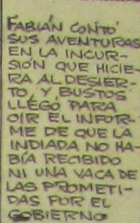 FABIÁN CONTÓ
SUS AVENTURAS
EN LA INCUR-
SIÓN QUE HICIE-
RA AL DESIER-
TO, Y BUSTOS
LLEGÓ PARA
OIR EL INFOR-
ME DE QUE LA
INDIADA NO HA-
BÍA RECIBIDO
NI UNA VACA DE
LAS PROMETI-
DAS POR EL
GOBIERNO